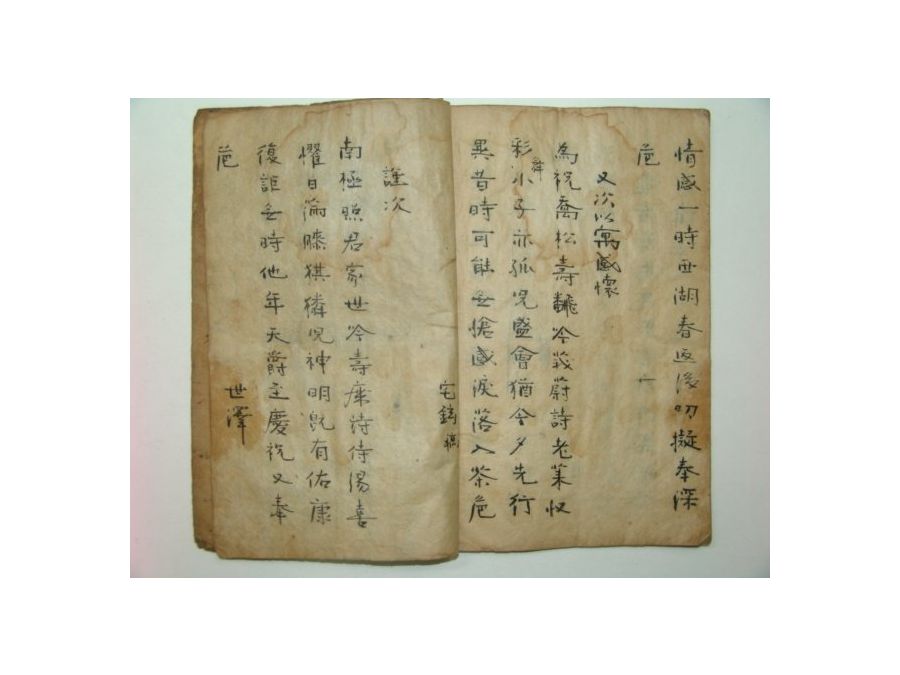 情感一時西湖春返後叨擬奉深
巵
又次以寓感懷
為祝喬松壽 今莪蔚詩老萊収
彩小子亦孤况盛會猶今夕先行
舞
異昔時可能無愴感淚落入茶巵
宅鎬稿
謹次
南極照君家世令壽 侍湯喜
懼日滿膝猉獜况神明既有佑康
復詎無時他年天爵至慶祝又奉
巵
世澤